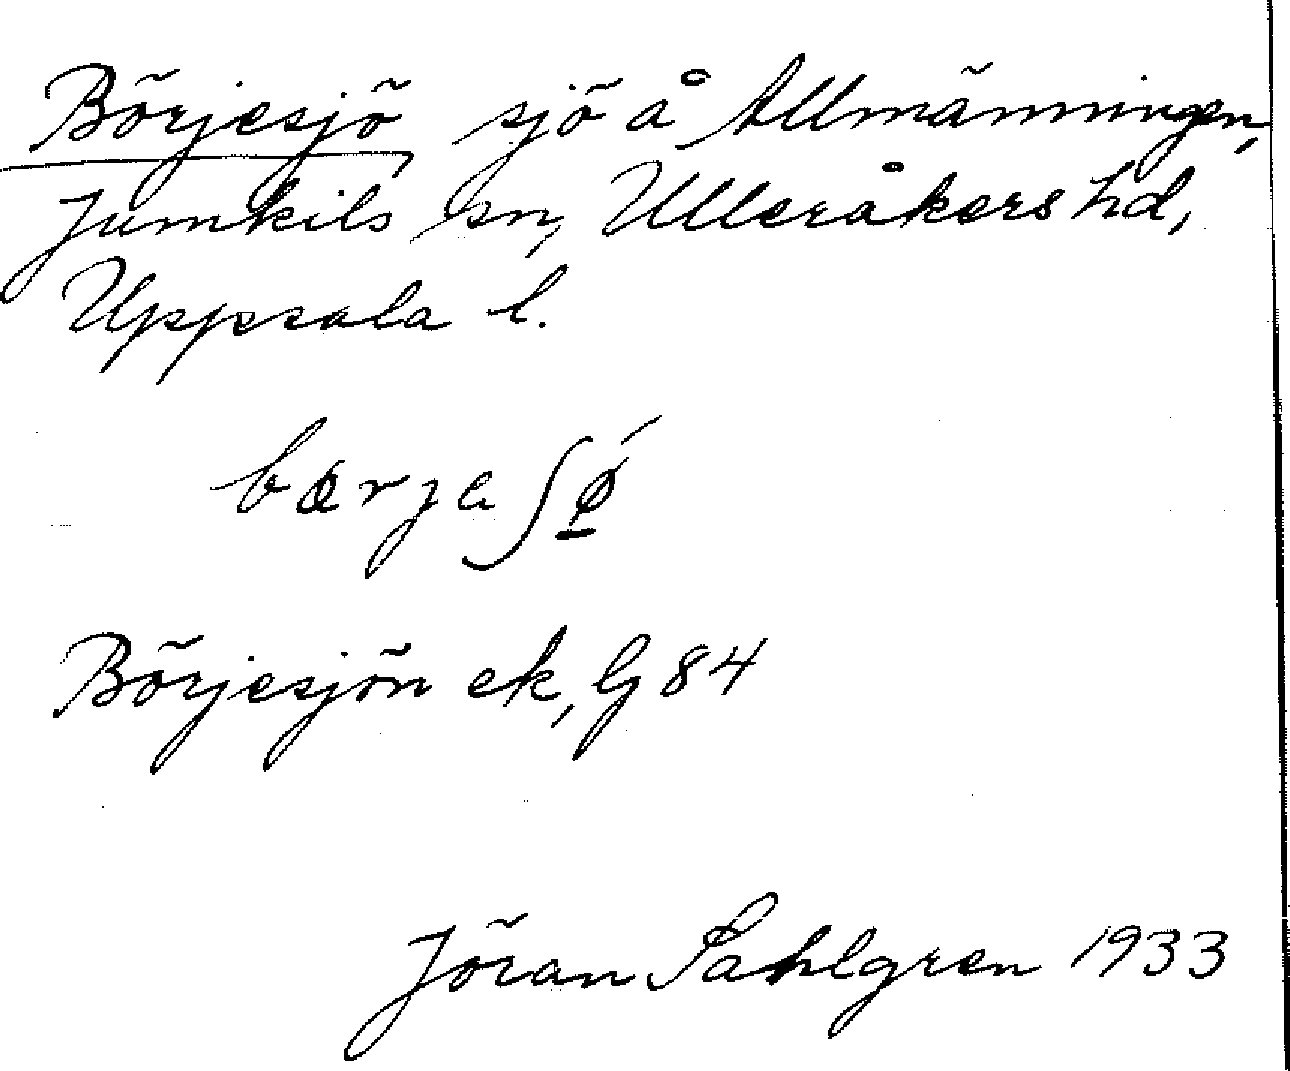 Börjesjö, sjö å Allmänningen,
Jumkils sn, Ulleråkers hd,
Uppsala l.
bœrjaʃǿ
Börjesjön ek, bj 84
Jöran Sahlgren 1933